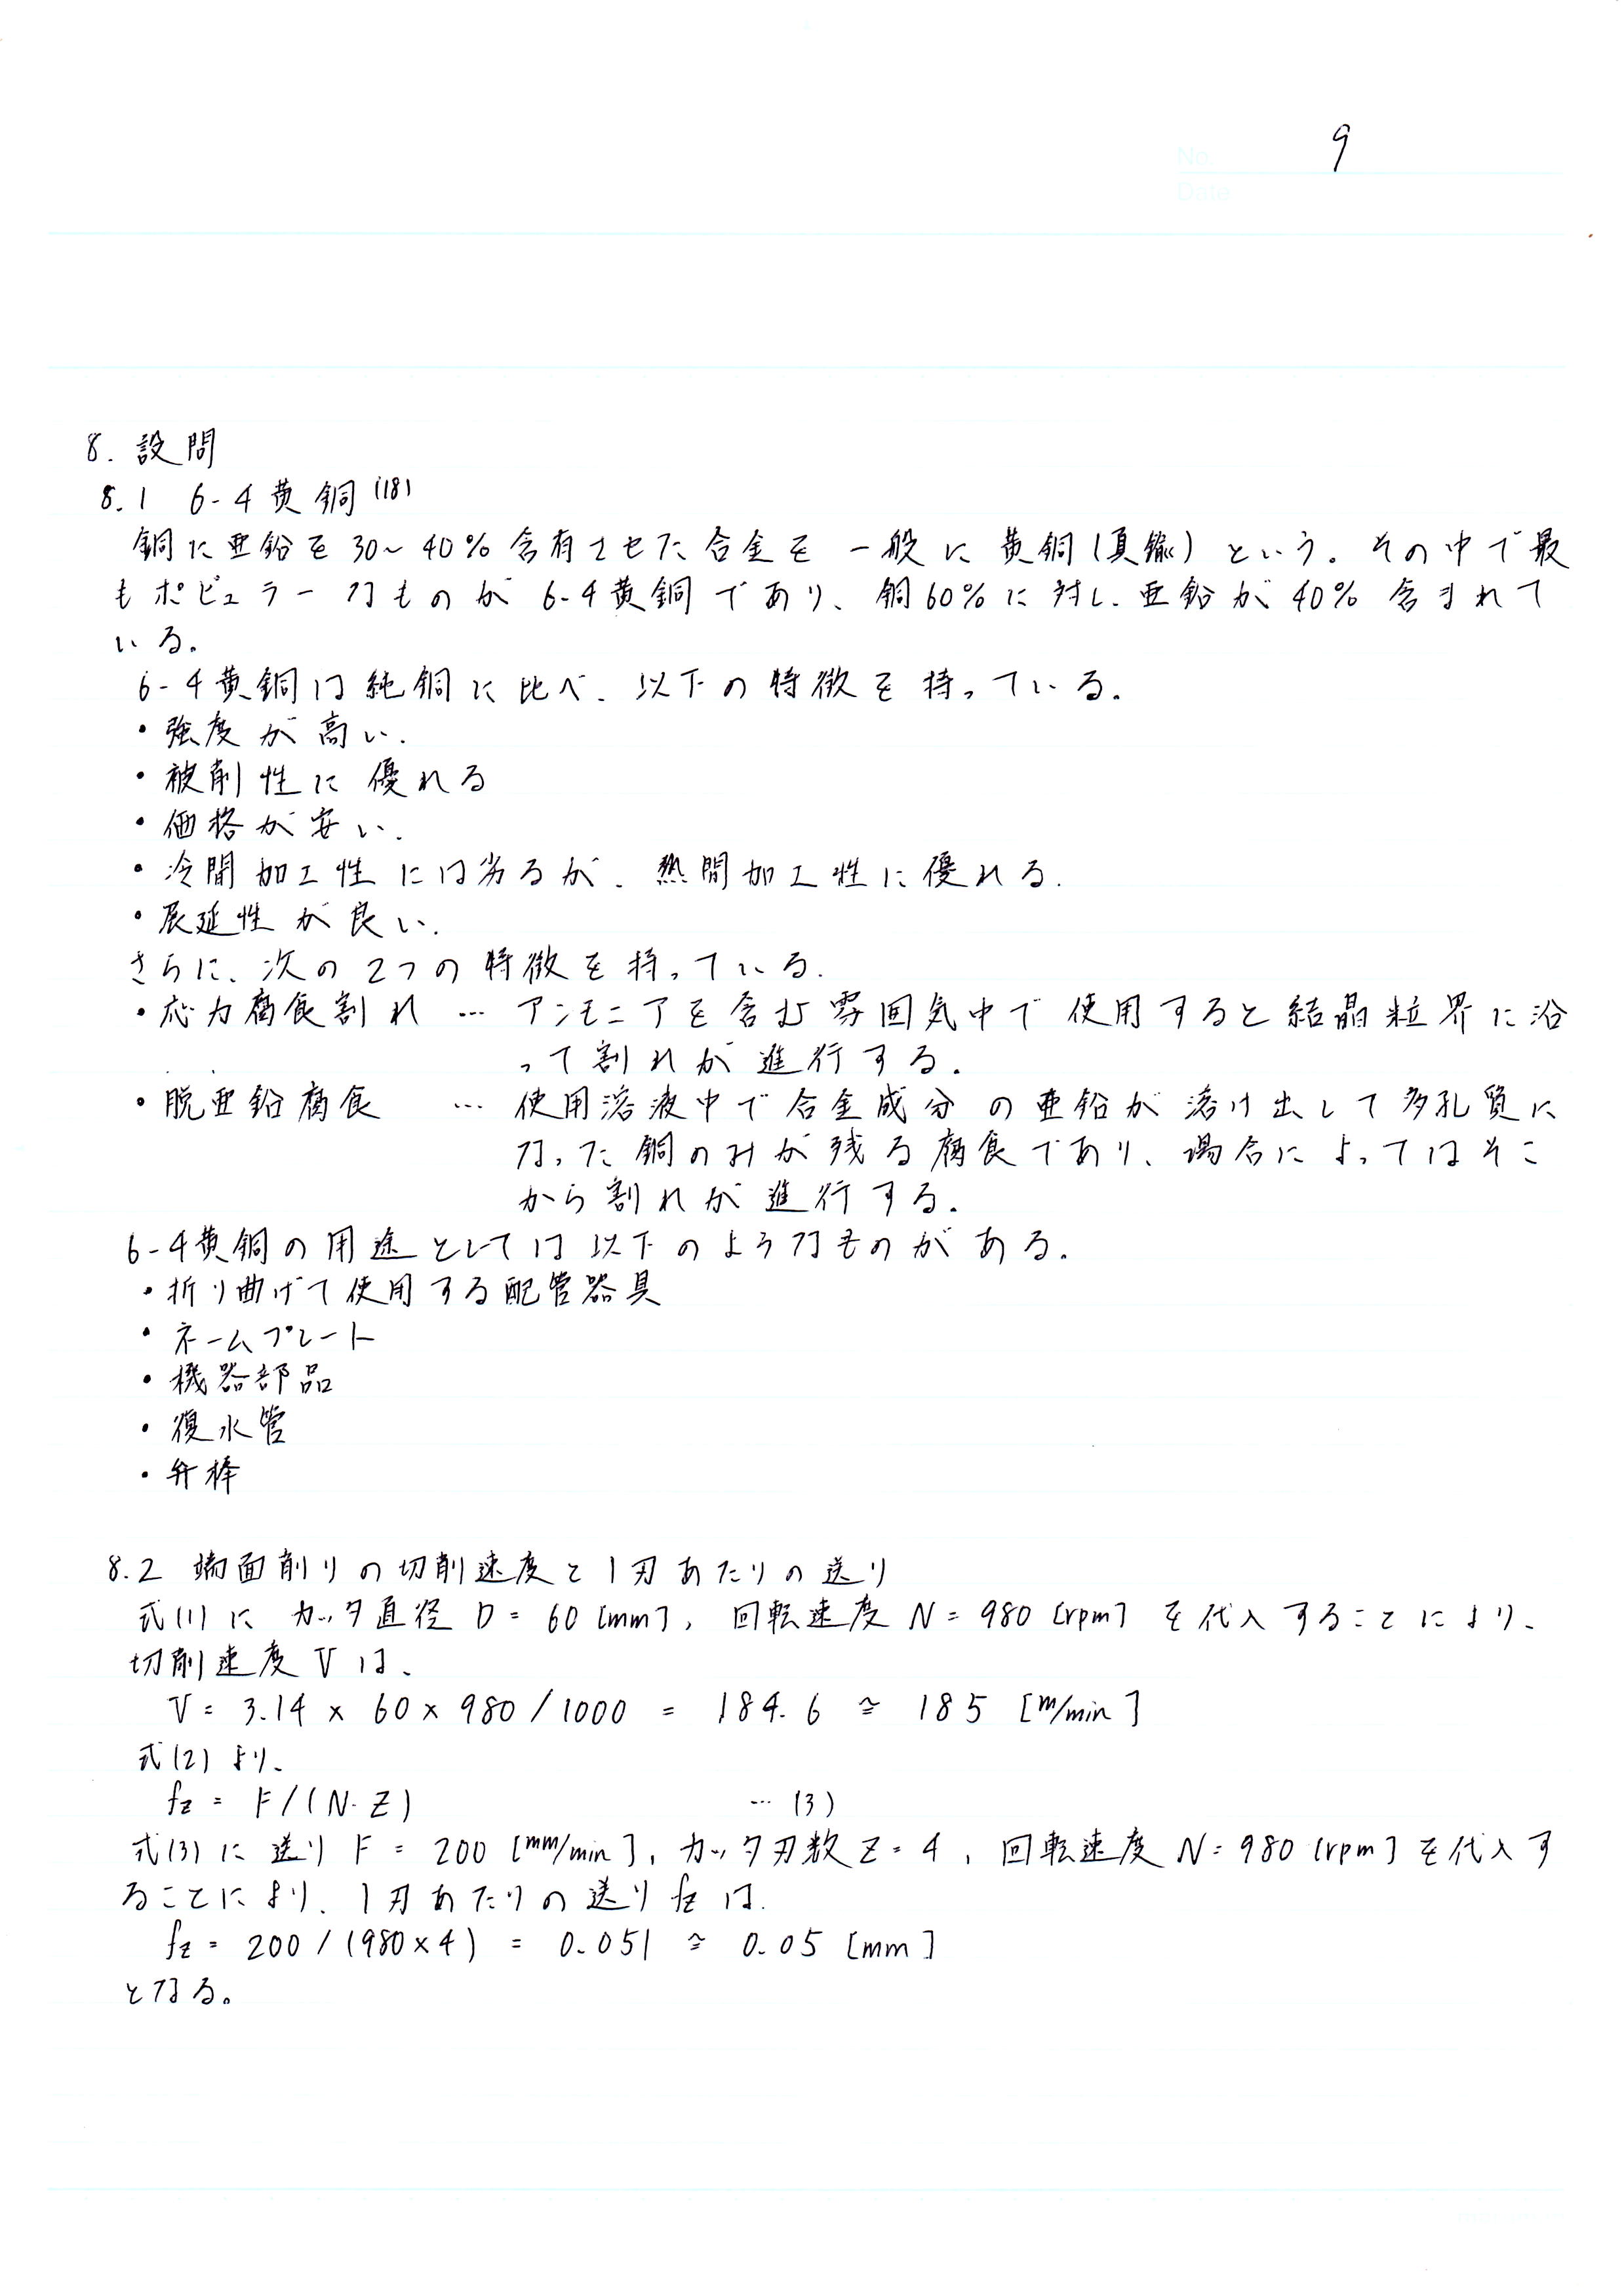 No. 9
Date
8. 設問
8.1 6-4黄銅(18)
銅に亜鉛を30~40%含有させた合金を一般に黄銅(真鍮)という。その中で最
もポピュラーなものが6-4黄銅であり、銅60%に対し、亜鉛が40%含まれて
いる。
6-4黄銅は純銅に比べ、以下の特徴を持っている。
・強度が高い。
・被削性に優れる
・価格が安い。
・冷間加工性には劣るが、熱間加工性に優れる。
・展延性が良い。
さらに、次の2つの特徴を持っている。
・応力腐食割れ … アンモニアを含む雰囲気中で使用すると結晶粒界に沿
って割れが進行する。
・脱亜鉛腐食 … 使用溶液中で合金成分の亜鉛が溶け出して多孔質に
なった銅のみが残る腐食であり、場合によってはそこ
から割れが進行する。
6-4黄銅の用途としては以下のようなものがある。
・折り曲げて使用する配管器具
・ネームプレート
・機器部品
・復水管
・弁棒
8.2 端面削りの切削速度と1刃あたりの送り
式(1)にカッタ直径D=60[mm], 回転速度N=980[rpm]を代入することにより、
切削速度Vは、
V= 3.14 × 60 × 980 / 1000 = 184.6 ≃ 185 [m/min]
式(2)より、
fz = F/(N・Z) …(3)
式(3)に送りF=200[mm/min], カッタ刃数Z=4, 回転速度N=980[rpm]を代入す
ることにより、1刃あたりの送りfzは、
fz = 200 / (980×4) = 0.051 ≃ 0.05 [mm]
となる。